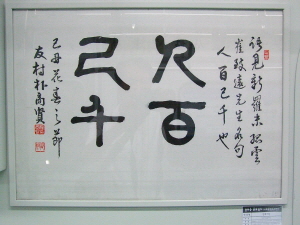 語見新羅末孤雲
崔致遠先生名句
人百己千也
人百
己千
己丑花春之節
友村朴